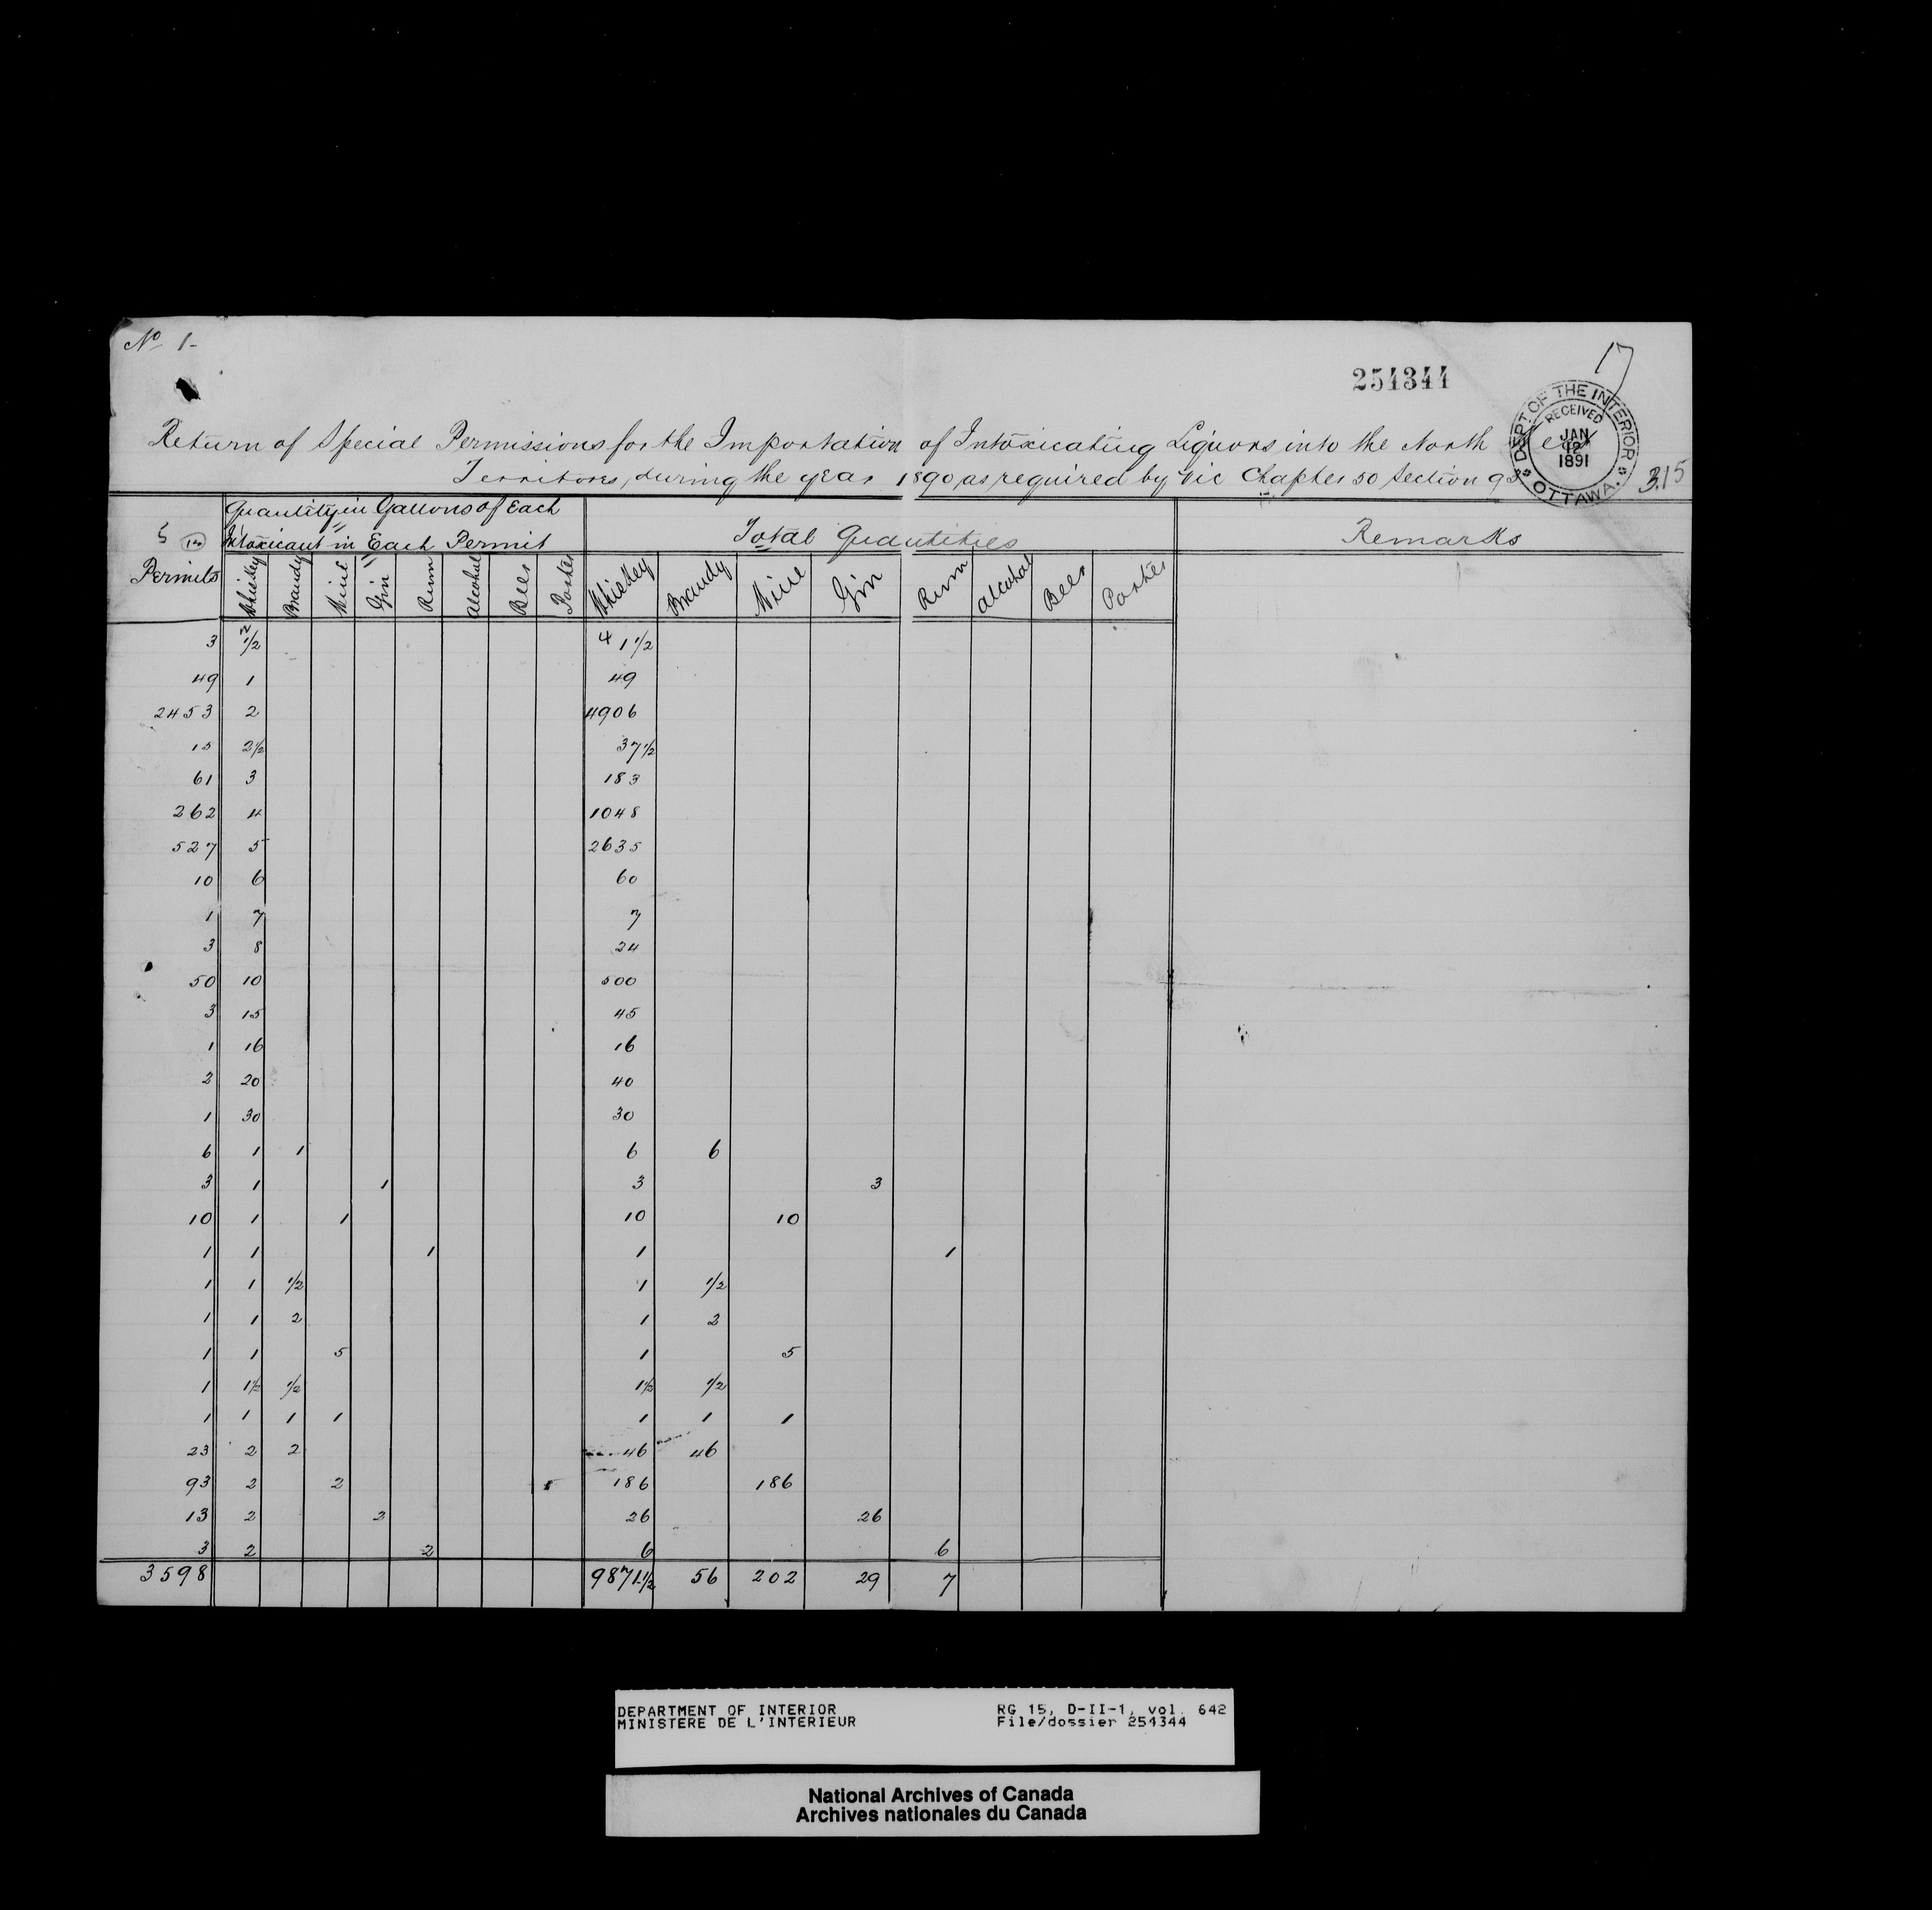 No 1-
17
254344
Return of Special Permissions for the Importation of Intoxicating Liquors into the North West
DEPT OF THE INTERIOR
RECEIVED
JAN
12
1891
OTTAWA.
Territories, during the year 1890, as required by Vic Chapter 50 Section 93
315
Quantity in Gallons of Each
Intoxicant in Each Permit
Total Quantities
Remarks
Permits
Whiskey Brandy Wine Gin Rum Alcohol Beer Porter Whiskey Brandy Wine Gin Rum Alcohol Beer Porter
3 1/2 1 1/2
49 1 49
2453 2 4906
15 2 1/2 37 1/2
61 3 183
262 4 1048
527 5 2635
10 6 60
1 7 7
3 8 24
50 10 500
3 15 45
1 16 16
2 20 40
1 30 30
6 1 1 6 6
3 1 1 3 3
10 1 1 10 10
1 1 1 1 1
1 1 1/2 1 1/2
1 1 2 1 2
1 1 5 1 5
1 1 1/2 1/2 1 1/2 1/2
1 1 1 1 1 1 1
23 2 2 46 46
93 2 2 186 186
13 2 2 26 26
3 2 2 6 6
3598 9871 1/2 56 202 29 7
DEPARTMENT OF INTERIOR RG 15, D-II-1, vol. 642
MINISTERE DE L'INTERIEUR File/dossier 254344
National Archives of Canada
Archives nationales du Canada